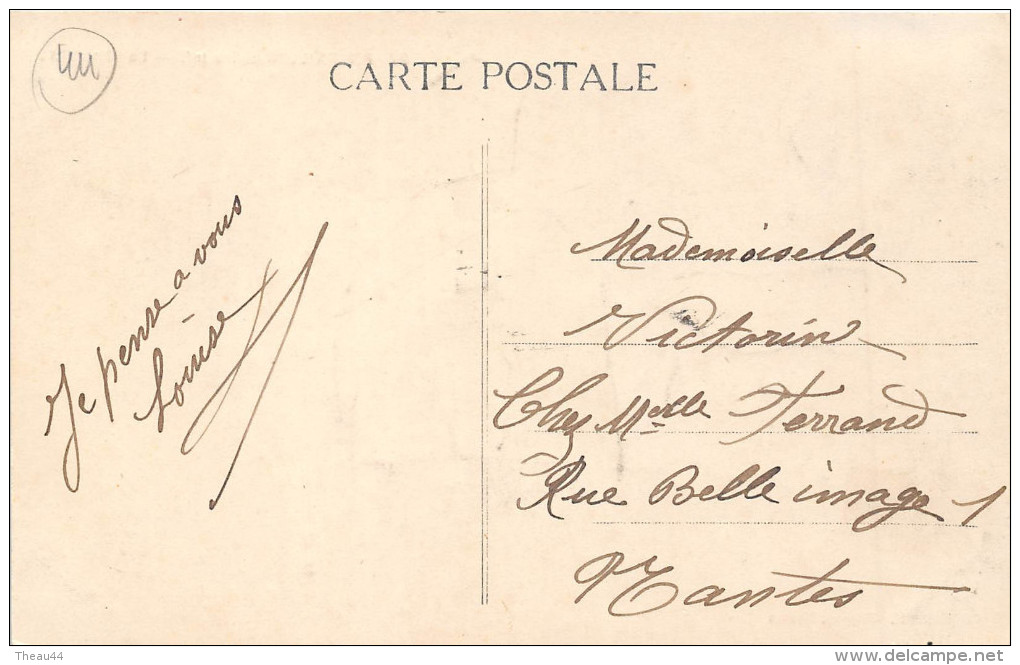 44
CARTE POSTALE
Je pense a vous
Louise
Mademoiselle
Victorin
Chez Melle Terrand
Rue Belle image 1
Nantes
Theau44
www.delcampe.net